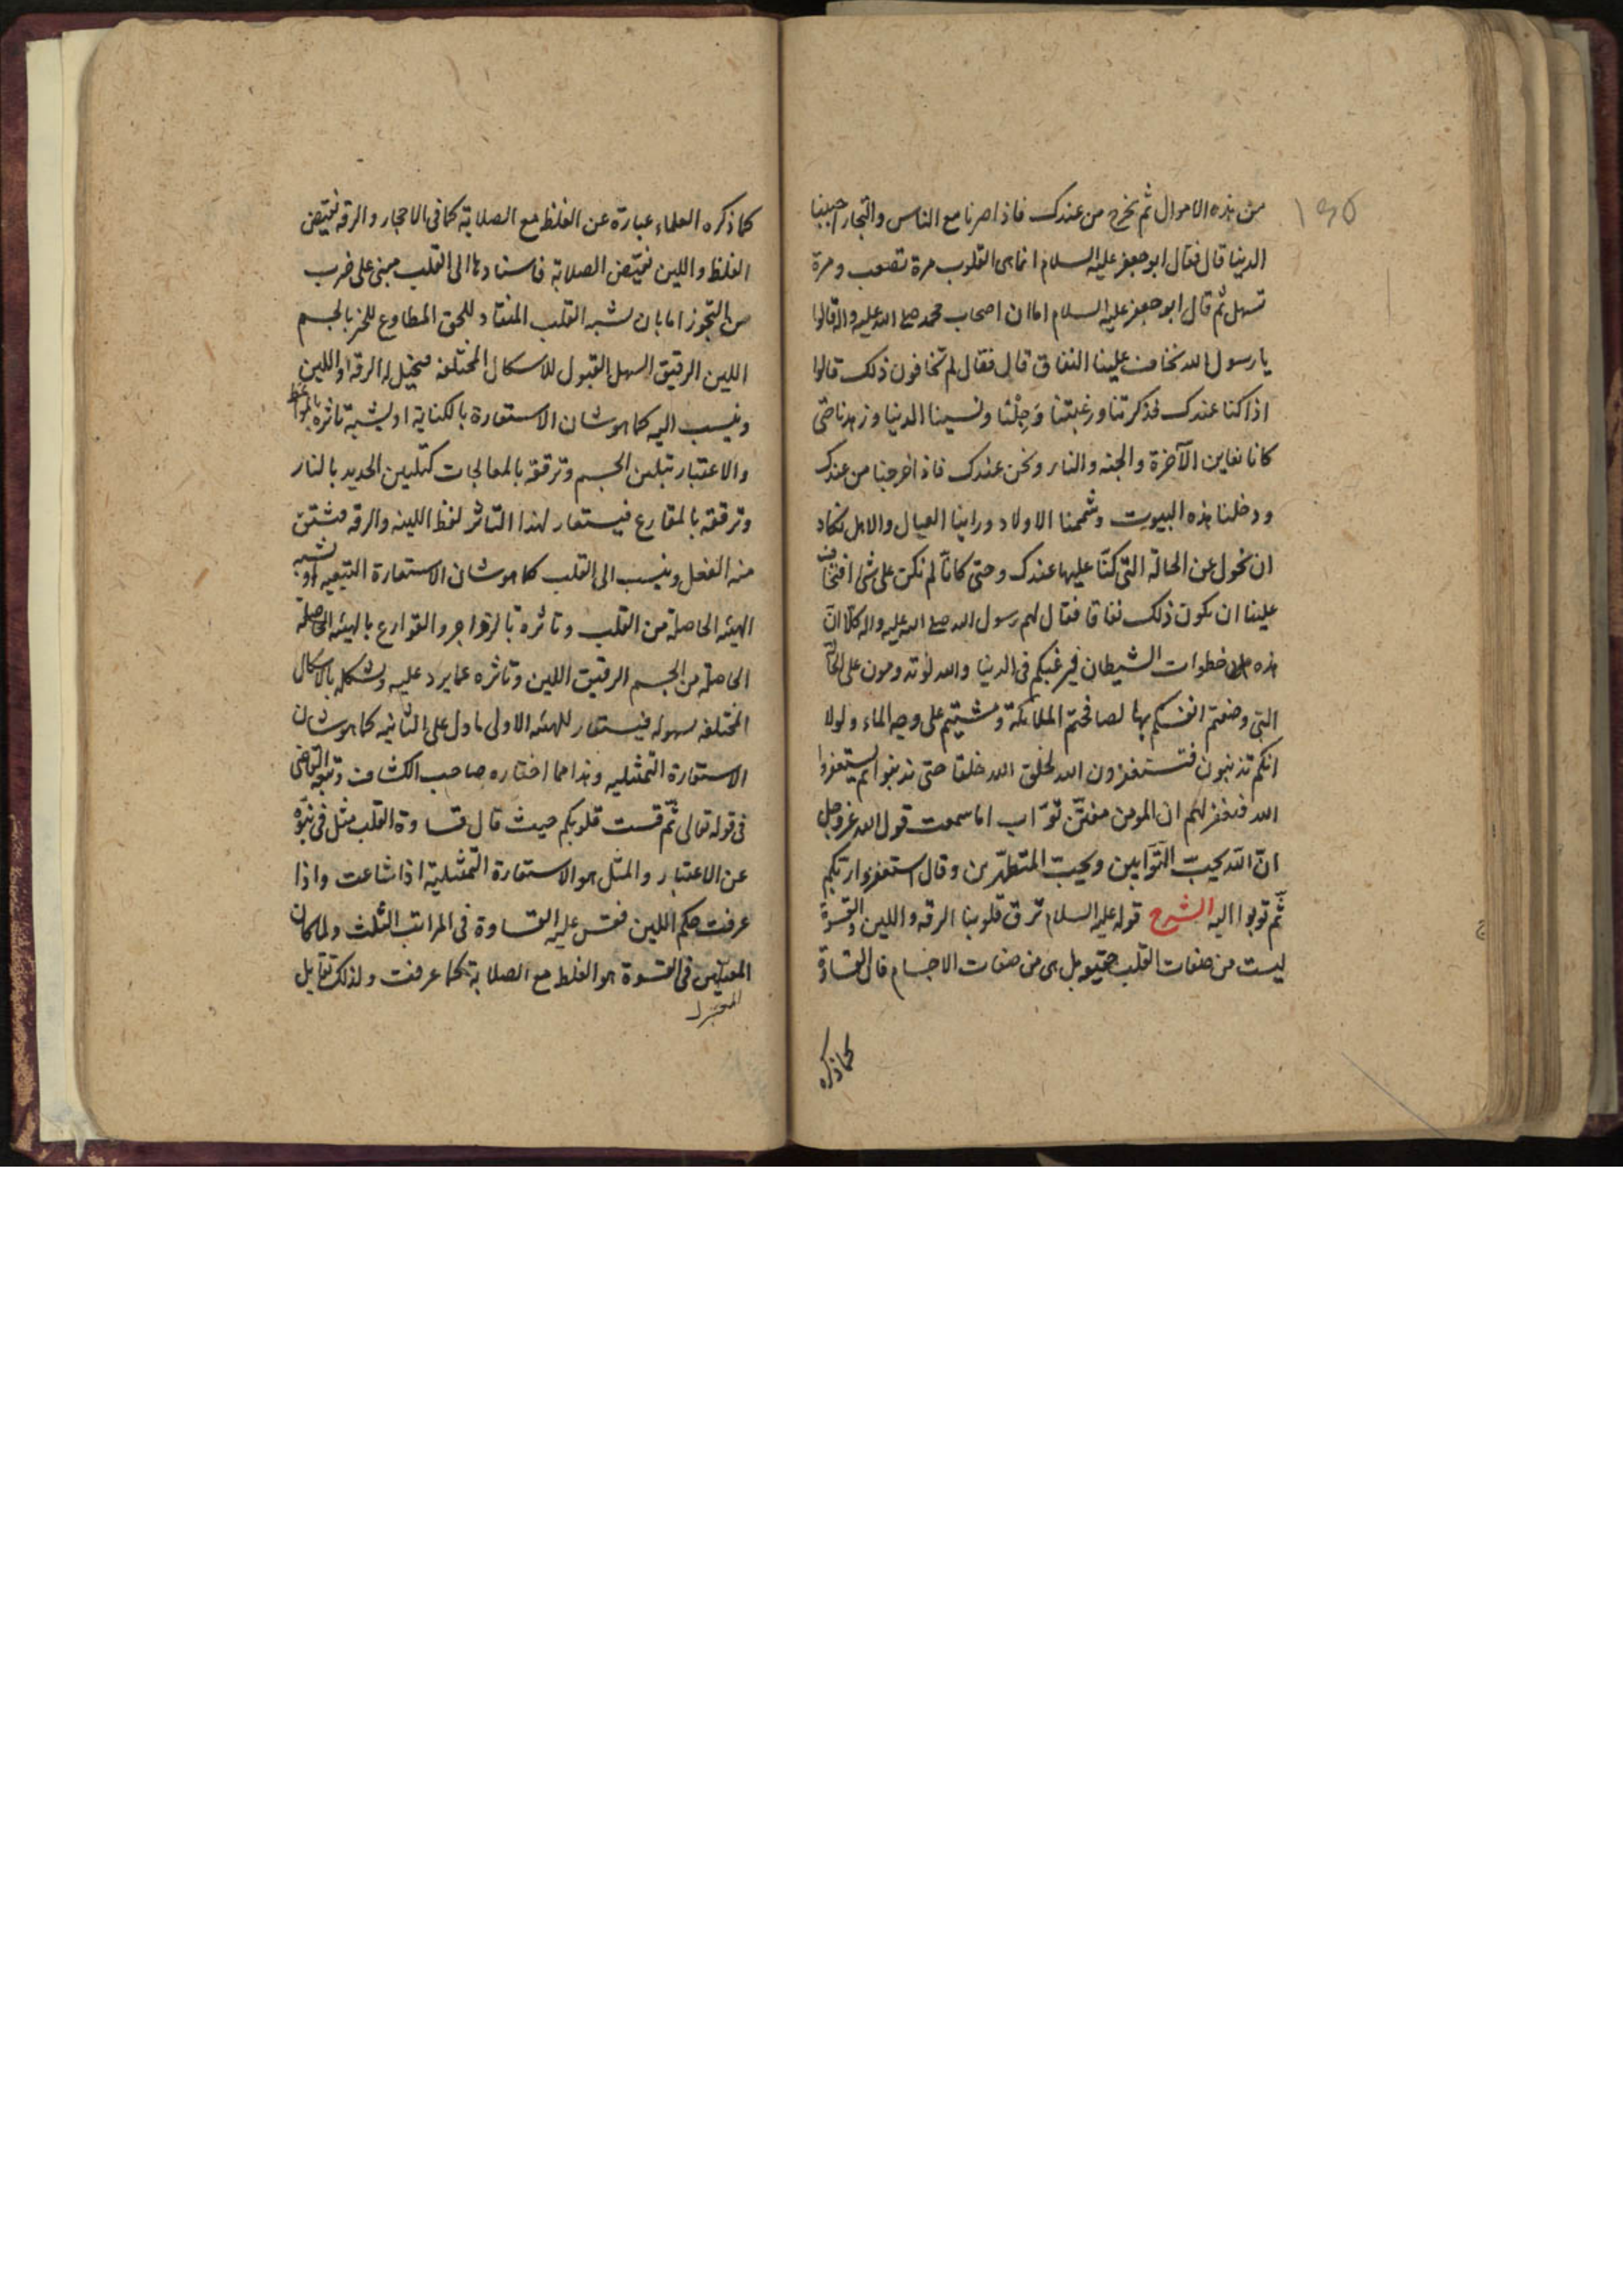 ١٤٥
من هذه الاموال ثم نخرج من عندك فاذا صرنا مع الناس والتجار احببنا
الدنيا قال فقال ابو جعفر عليه السلام انما هى القلوب مرة تصعب ومرة
تسهل ثم قال ابو جعفر عليه السلام اما ان اصحاب محمد صلى الله عليه واله قالوا
يا رسول الله نخاف علينا النفاق قال فقال لم تخافون ذلك قالوا
اذا كنا عندك فذكرتنا ورغبتنا وَجِلْنا ونسينا الدنيا وزهدنا حتى
كانا نعاين الآخرة والجنه والنار ونحن عندك فاذا خرجنا من عندك
ودخلنا هذه البيوت وشممنا الاولاد وراينا العيال والاهل نكاد
ان نحول عن الحالة التى كنّا عليها عندك وحتى كانّا لم نكن على شئ افتخاف
علينا ان يكون ذلك نفاقا فقال لهم رسول الله صلى الله عليه واله كلّا انّ
هذه خطوات الشيطان فيرغبكم فى الدنيا والله لو تدومون على الحالة
التى وصفتم انفسكم بها لصافحتم الملائكة ومشيتم على وجه الماء ولولا
انكم تذنبون فتستغفرون الله لخلق الله خلقا حتى يذنبوا ثم يستغفروا
الله فيغفر لهم ان المومن مفتّن توّاب اما سمعت قول الله عز وجل
انّ الله يحبّ التّوّابين ويحبّ المتطهّرين وقال استغفروا ربّكم
ثمّ توبوا اليه الشرح قوله عليه السلام ترق قلوبنا الرقه واللين والقسوة
ليست من صفات القلب حقيقة بل هى من صفات الاجسام فان القساوة
كما ذكره
كما ذكره العلماء عبارة عن الغلظ مع الصلابة كما فى الاحجار والرقه نقيض
الغلظ واللين نقيض الصلابة فاسنادها الى القلب مبنى على ضرب
من التجوز اما بان شبه القلب المنقاد للحق المطاوع للخير بالجسم
اللين الرقيق السهل القبول للاشكال المختلفه فيخيل له الرقه او اللين
وينسب اليه كما هو شان الاستعارة بالكناية او يشبه تاثره بالمواعظ
والاعتبار بتلين الجسم وترققه بالمعالجات كتليين الحديد بالنار
وترققه بالمقارع فيستعار لهذا التاثر لفظ اللينه والرقه فيشتق
منه الفعل وينسب الى القلب كما هو شان الاستعارة التبعيه او يشبه
الهيئه الحاصلة من القلب وتاثره بالزواجر والقوارع بالهيئه الحاصلة
الحاصلة من الجسم الرقيق اللين وتاثره عما يرد عليه وتشكله بالاشكال
المختلفه بسهوله فيستعار للهيئه الاولى ما دل على الثانيه كما هو شان
الاستعارة التمثيليه وهذا مما اختاره صاحب الكشاف وتبعه القاضى
فى قوله تعالى ثمّ قست قلوبكم حيث قال قساوة القلب مثل فى نبوّه
عن الاعتبار والمثل هو الاستعارة التمثيلية اذا شاعت واذا
عرفت حكم اللين فقس عليه القساوة فى المراتب الثلث ولما كان
المعتبر فى القسوة هو الغلظ مع الصلابة كما عرفت ولذلك تقابل